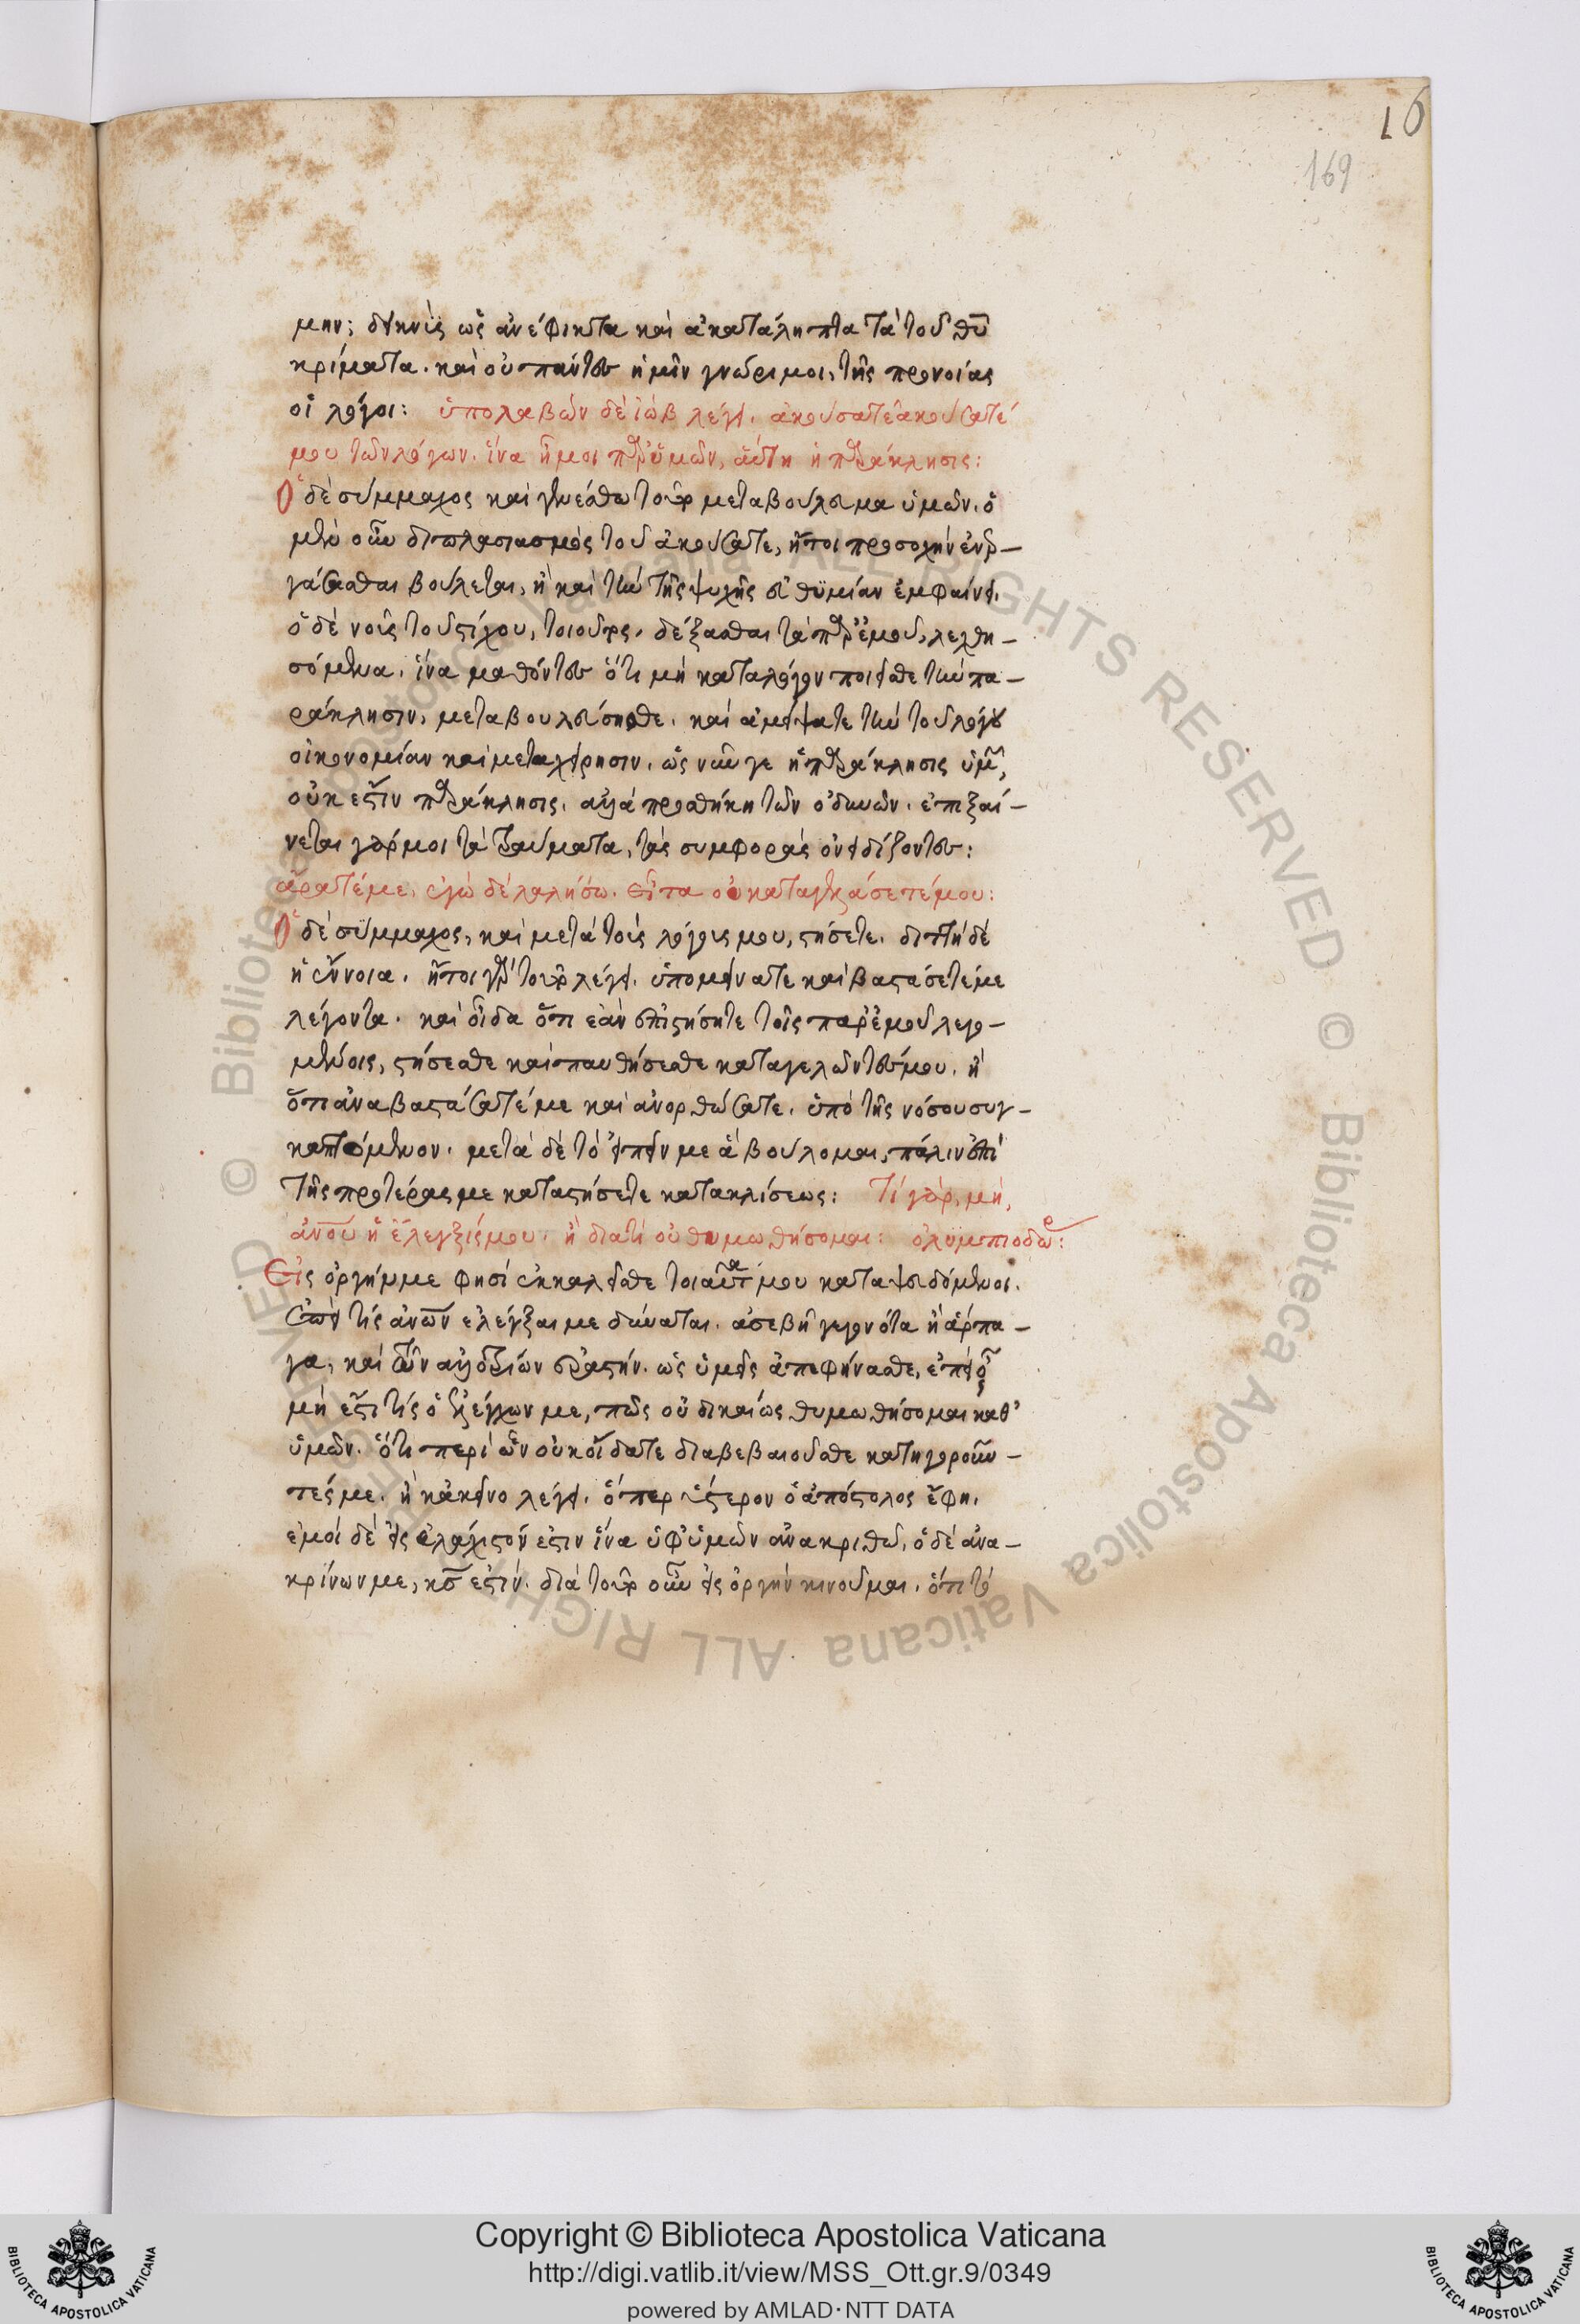 16
169
μην; δεικνὺς ὡς ἀνέφικτα καὶ ἀκατάληπτα τὰ τοῦ θυ
κρίματα. καὶ οὐ πάντως ἡμῖν γνώριμοι, τῆς προνοίας
οἱ λόγοι: ὑπολαβὼν δὲ ἰὼβ λέγει. ἀκούσατε ἀκούσατέ
μου τῶν λόγων. ἵνα ἦ μοι παρ' ὑμῶν, αὕτη ἡ παράκλησις:
Ὁ δὲ σύμμαχος καὶ γενέσθω τοῦτο μεταβούλευμα ὑμῶν. ὁ
μὲν οὖν διπλασιασμὸς τοῦ ἀκούσατε, ἤτοι προσοχὴν ἐνερ-
γάσασθαι βούλεται, ἢ καὶ τὴν τῆς ψυχῆς ἐπιθυμίαν ἐμφαίνει.
ὁ δὲ νοῦς τοῦ στίχου, τοιοῦτος. δέξασθαι τὰ παρ' ἐμοῦ, λεχθη-
σόμενα. ἵνα μαθόντες ὅτι μὴ κατὰ λόγον ποιεῖσθε τὴν πα-
ράκλησιν, μεταβουλεύσησθε. καὶ ἀμείψατε τὴν τοῦ λόγου
οἰκονομίαν καὶ μεταχείρησιν. ὡς νῦν γε ἡ παράκλησις ὑμῶν,
οὐκ ἔστιν παράκλησις. ἀλλὰ προσθήκη τῶν ὀδυνῶν. ἐπιξαί-
νεται γάρ μοι τὰ τραύματα, τὰς συμφορὰς ὀνειδίζοντες:
ἄρατέ με, ἐγὼ δὲ λαλήσω. εἶτα οὐ καταγελάσετέ μου:
Ὁ δὲ σύμμαχος, καὶ μετὰ τοὺς λόγους μου, στήσετε. διττὴ δὲ
ἡ ἔννοια. ἤτοι γὰρ τοῦτο λέγει. ὑπομείνατε καὶ βαστάσετέ με
λέγοντα. καὶ οἶδα ὅτι ἐὰν ἐπιστήσητε τοῖς παρ' ἐμοῦ λεγο-
μένοις, στήσεσθε καὶ παυθήσεσθε καταγελῶντές μου. ἢ
ὅτι ἀναβαστάσατέ με καὶ ἀνορθώσατε. ὑπὸ τῆς νόσου συγ-
καπτόμενον. μετὰ δὲ τὸ εἰπεῖν με ἃ βούλομαι, πάλιν ἐπὶ
τῆς προτέρας με καταστήσετε κατακλίσεως: Τί γὰρ, μὴ,
ἀνου ἡ ἔλεγξίς μου. ἢ διατί οὐ θυμωθήσομαι: ὀλυμπιοδώρ:
Εἰς ὀργήν με φησὶ ἐκκαλεῖσθε τοιαῦτα μου καταψευδόμενοι.
ἐπὰν τίς ἀνων ἐλέγξαι με δύναται. ἀσεβῆ γεγονότα ἢ ἅρπα-
γα, καὶ τῶν ἀλλοτρίων ἐραστήν. ὡς ὑμεῖς ἀπεφήνασθε, ἐπεὶ οὖν
μὴ ἔστι τίς ὁ ἐξελέγχων με, πῶς οὐ δικαίως θυμωθήσομαι καθ'
ὑμῶν. ὅτι περὶ ὧν οὐκ οἴδατε διαβεβαιοῦσθε κατηγοροῦν-
τές με. ἢ κἀκεῖνο λέγει. ὅπερ ὕστερον ὁ ἀπόστολος ἔφη.
ἐμοὶ δὲ εἰς ἐλάχιστόν ἐστιν ἵνα ὑφ' ὑμῶν ἀνακριθῶ. ὁ δὲ ἀνα-
κρίνων με, κσ ἐστίν. διὰ τοῦτο οὖν εἰς ὀργὴν κινοῦμαι. ὅτι τὸ
Copyright © Biblioteca Apostolica Vaticana
http://digi.vatlib.it/view/MSS_Ott.gr.9/0349
powered by AMLAD·NTT DATA